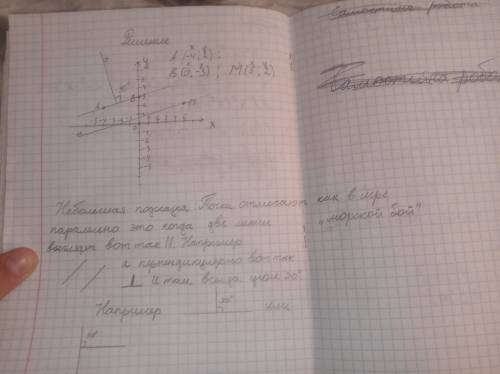 Решение
A (-4; 2);
B (0; -3); M (5; 2)
Самостійна робота
Самостійна робота
y
90°
A
B
M
0
x
Небольшая подсказка: Точки отмечают как в игре
паралельно это когда две линии „морской бой"
выглядят вот так ||. Например
а перпендикулярно вот так
⊥ и там всегда угол 90°.
Например 90° или
90°